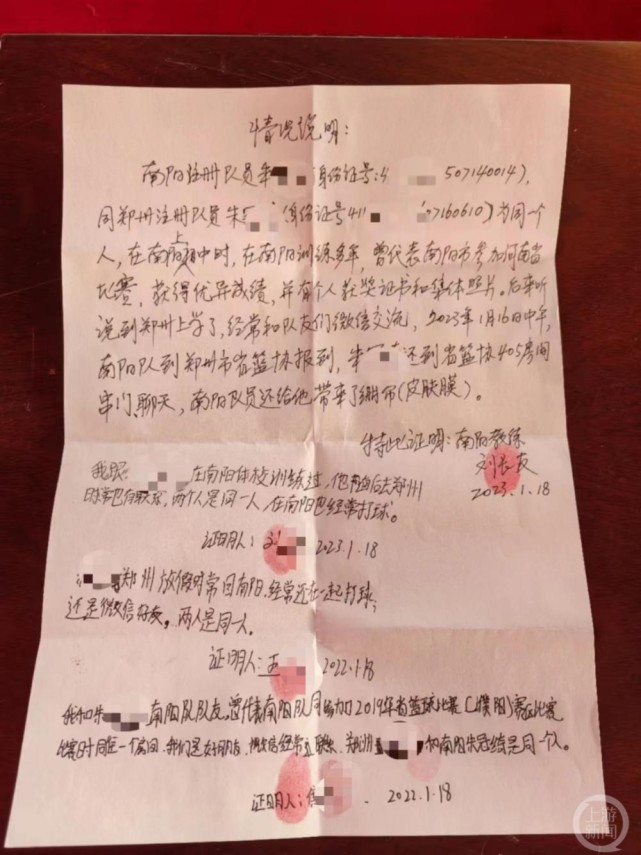 情况说明:
南阳注册队员朱 (身份证号:4 507140014),
同郑州注册队员朱 (身份证号411 07160610)为同一个
人,在南阳上初中时,在南阳训练多年,曾代表南阳市参加河南省
比赛,获得优异成绩,并有个人获奖证书和集体照片。后来听
说到郑州上学了,经常和队友们微信交流,2023年1月16日中午,
南阳队到郑州市省篮协报到,朱 还到省篮协405房间
串门聊天,南阳队员还给他带来了绷布(皮肤膜)。
特此证明:南阳教练
刘长友
2023.1.18
我跟 在南阳体校训练过,他 去郑州
时常也有联系,两个人是同一人,在南阳也经常打球。
证明人:刘 2023.1.18
郑州放假时常回南阳,经常还在一起打球,
还是微信好友,两人是同一人。
证明人:王 2022.1.18
我和朱 南阳队队友,曾代表南阳队 参加2019年省篮球比赛(濮阳)赛区比赛
比赛时同住一个房间,我们是好朋友,微信经常互联系,郑州 和南阳朱 是同一个人。
证明人: 2022.1.18
上游新闻